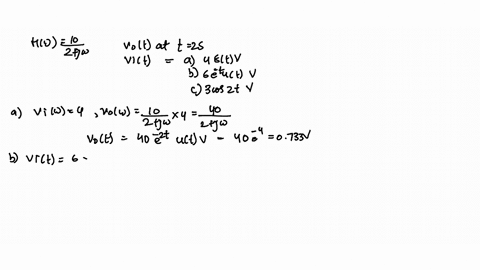 H(ω) = 10/2+jω v₀(t) at t=2s
Vi(t) = a) 4 δ(t) V
b) 6e^-t u(t) V
c) 3 cos 2t V
a) Vi(ω) = 4 , v₀(ω) = 10/2+jω × 4 = 40/2+jω
V₀(t) = 40 e^-2t u(t) V - 40 e^-4 = 0.733V
b) Vi(t) = 6